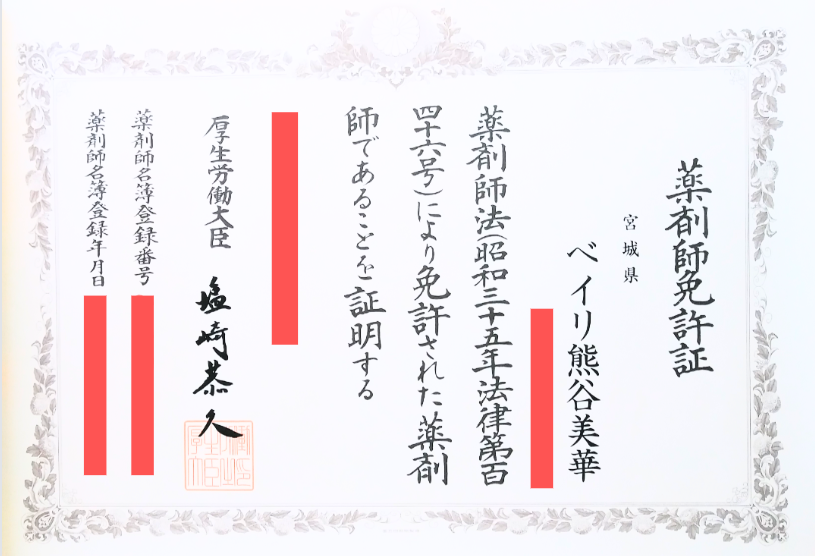 薬剤師免許証
宮城県
ベイリ熊谷美華
薬剤師法（昭和三十五年法律第百
四十六号）により免許された薬剤
師であることを証明する
厚生労働大臣 塩崎恭久
薬剤師名簿登録番号
薬剤師名簿登録年月日